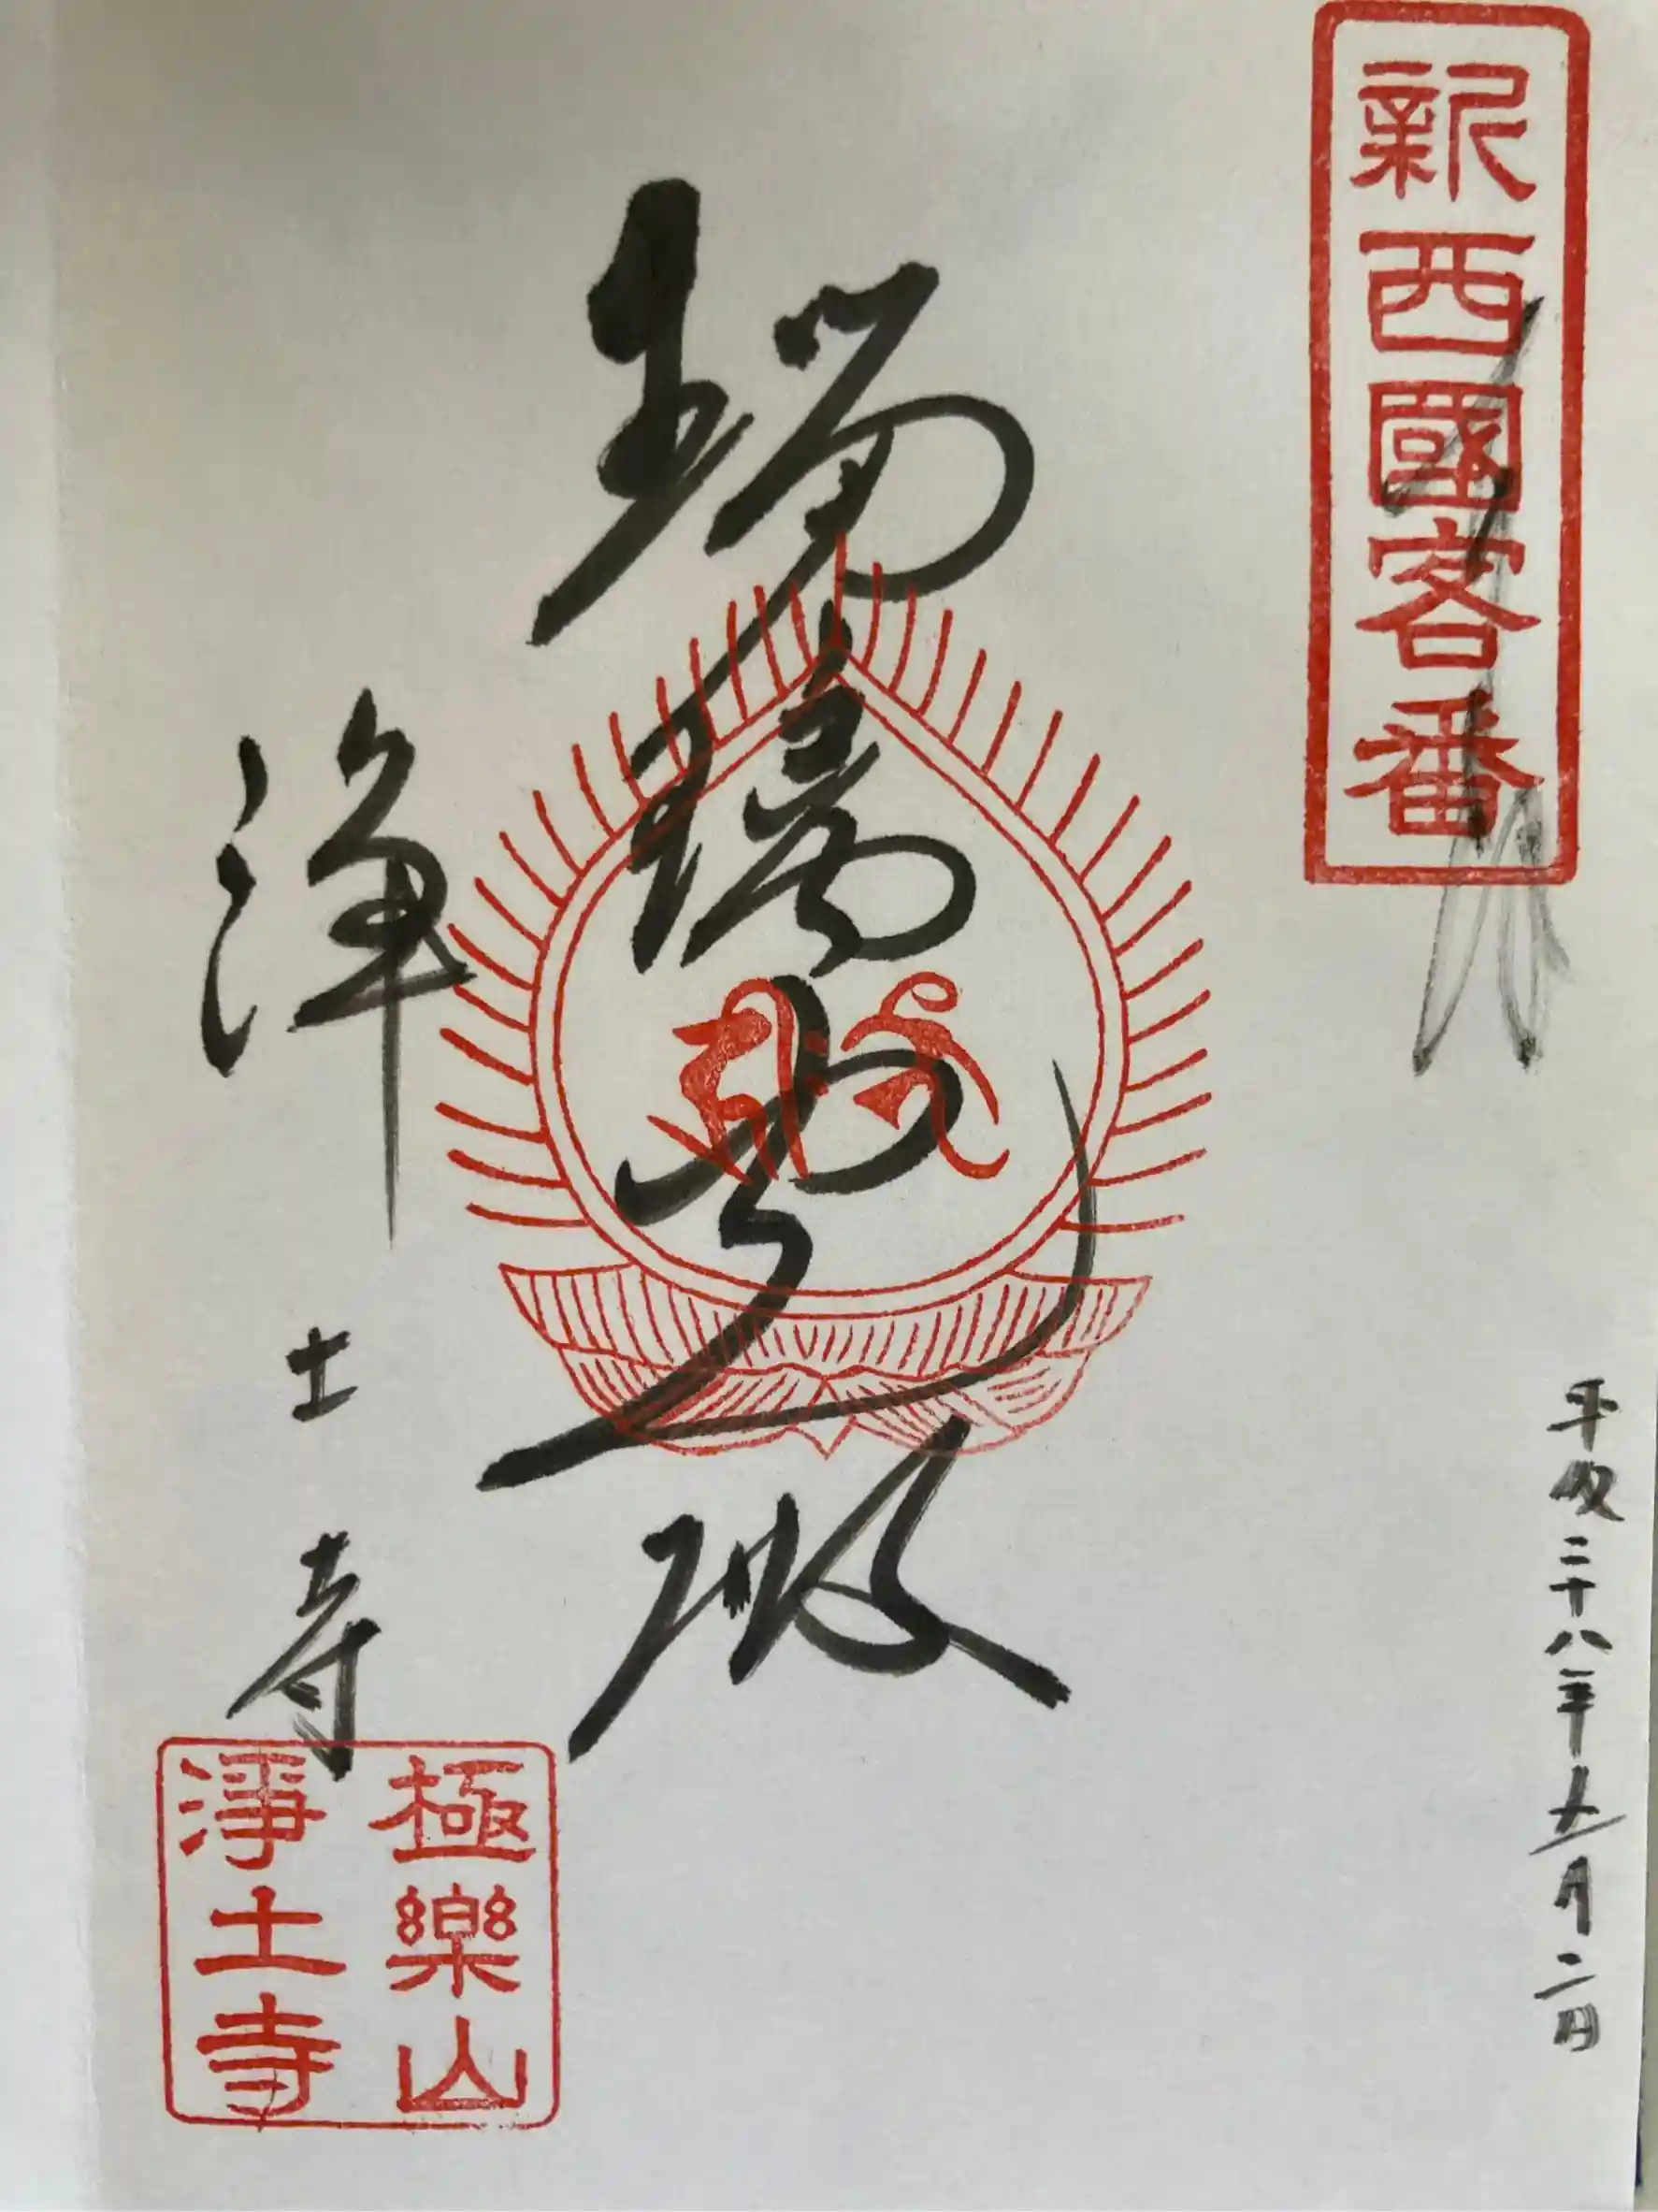 新西國客番
平成二十八年五月二日
瑠璃
浄土寺
極樂山
淨土寺